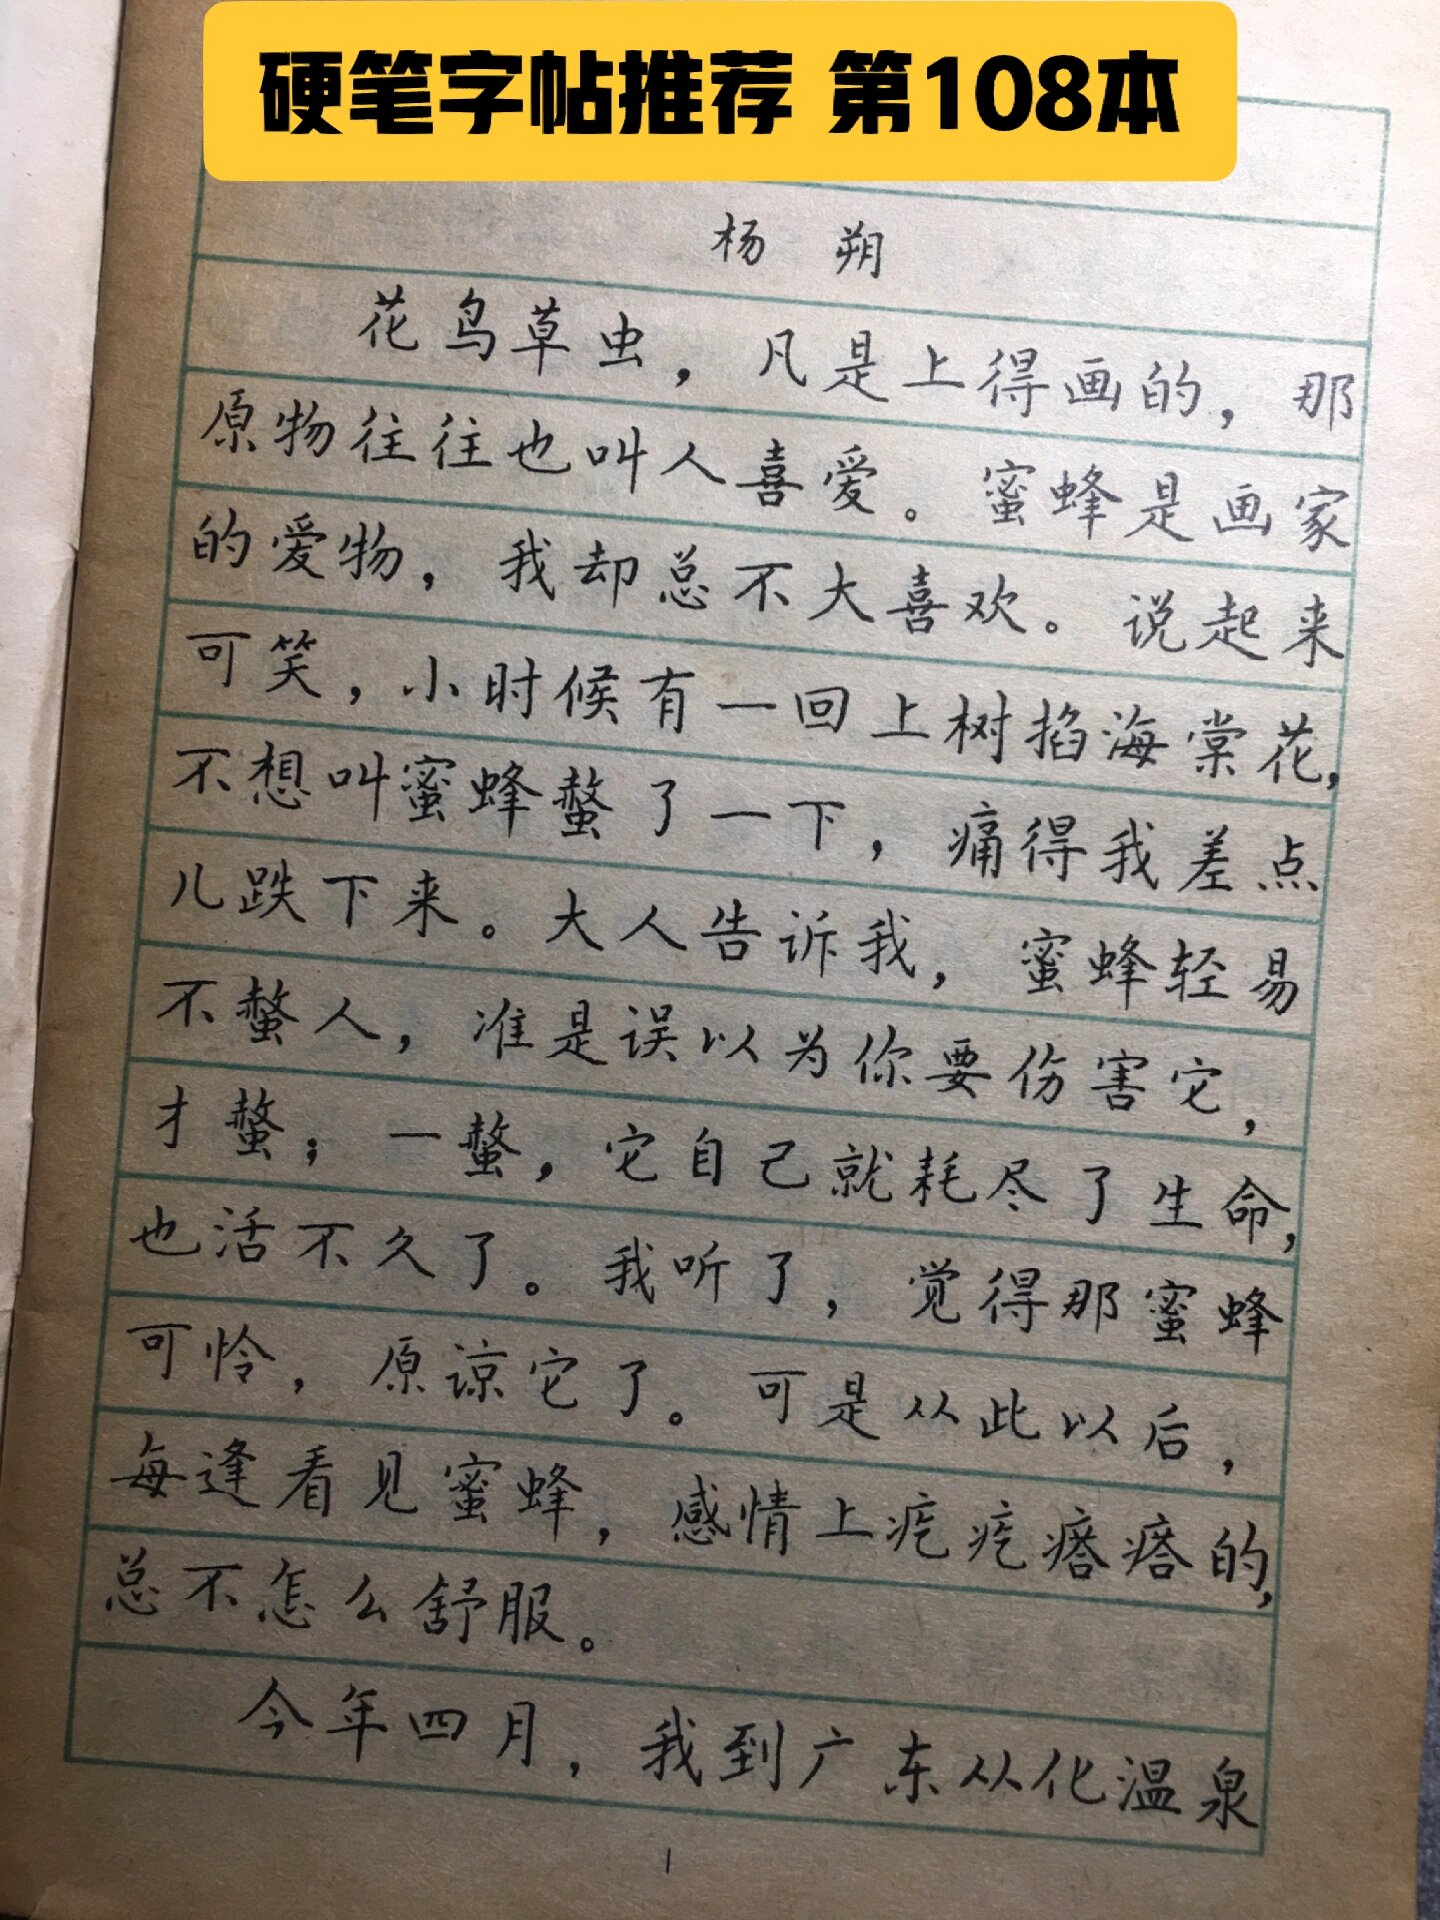 硬笔字帖推荐 第108本
杨 朔
花鸟草虫，凡是上得画的，那
原物往往也叫人喜爱。蜜蜂是画家
的爱物，我却总不大喜欢。说起来
可笑，小时候有一回上树掐海棠花，
不想叫蜜蜂螫了一下，痛得我差点
儿跌下来。大人告诉我，蜜蜂轻易
不螫人，准是误以为你要伤害它，
才螫；一螫，它自己就耗尽了生命，
也活不久了。我听了，觉得那蜜蜂
可怜，原谅它了。可是从此以后，
每逢看见蜜蜂，感情上疙疙瘩瘩的，
总不怎么舒服。
今年四月，我到广东从化温泉
1